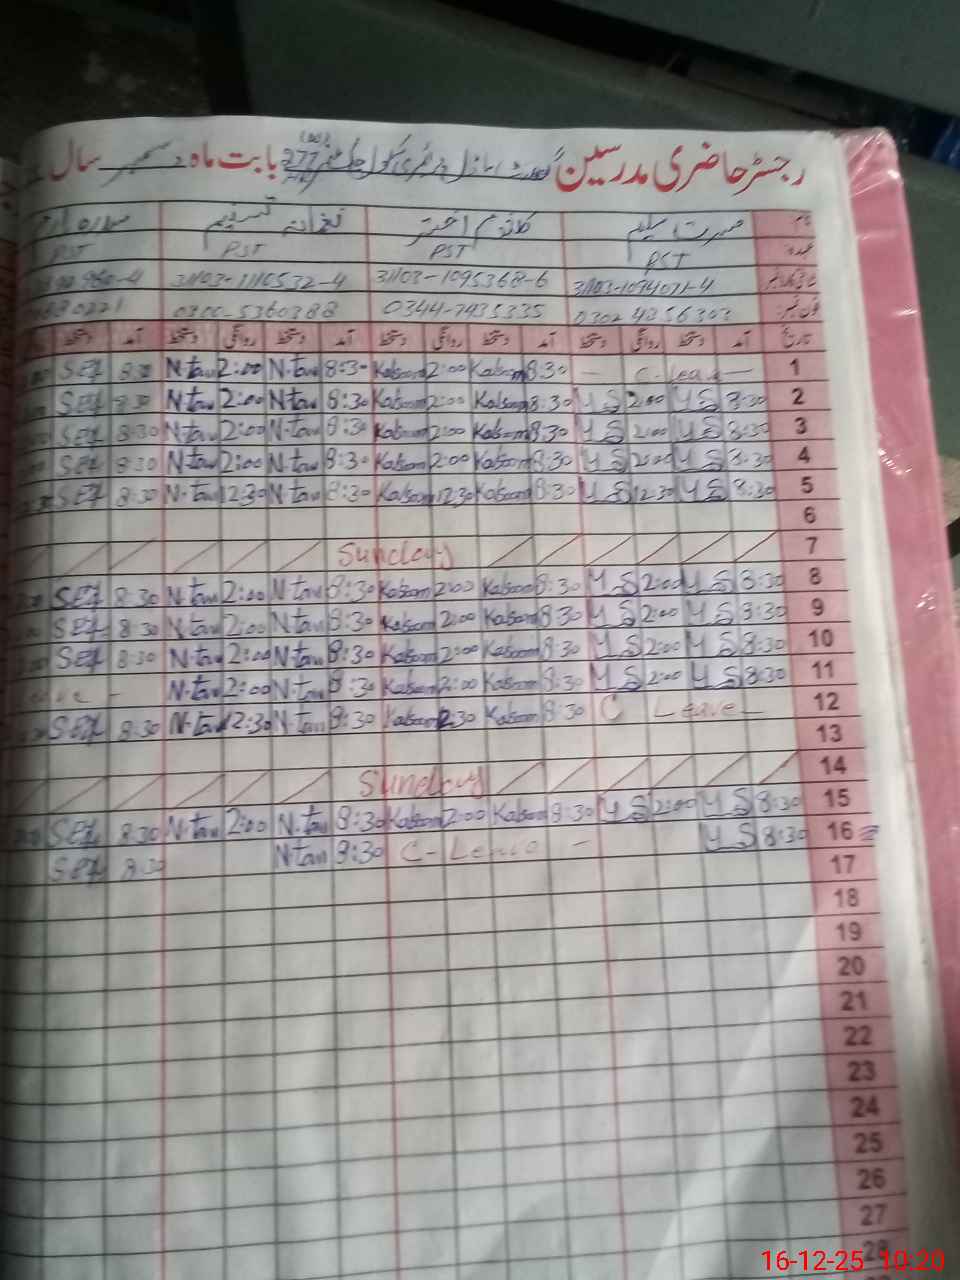 رجسٹر حاضری مدرسین گورنمنٹ ماڈل پرائمری سکول چک نمبر 277 بابت ماہ دسمبر سال
نام مسرت سلیم کلثوم اختر تسنیم
عہدہ PST PST PST PST
31103-1094071-4 31103-1095368-6 31103-1110532-4 960-4
فون نمبر 0302 4356303 0344-7435335 0300-5360388 0221
تاریخ آمد دستخط روانگی دستخط آمد دستخط روانگی دستخط آمد دستخط روانگی دستخط آمد دستخط
SEF 8:30 N-tau 2:00 N-tau 8:30 Kalsoom 2:00 Kalsoom 8:30 — C-Leave — 1
SEF 8:30 N-tau 2:00 N-tau 8:30 Kalsoom 2:00 Kalsoom 8:30 YS 2:00 YS 8:30 2
SEF 8:30 N-tau 2:00 N-tau 8:30 Kalsoom 2:00 Kalsoom 8:30 YS 2:00 YS 8:30 3
SEF 8:30 N-tau 2:00 N-tau 8:30 Kalsoom 2:00 Kalsoom 8:30 YS 2:00 YS 8:30 4
SEF 8:30 N-tau 12:30 N-tau 8:30 Kalsoom 12:30 Kalsoom 8:30 YS 12:30 YS 8:30 5
6
Sunday 7
SEF 8:30 N-tau 2:00 N-tau 8:30 Kalsoom 2:00 Kalsoom 8:30 YS 2:00 YS 8:30 8
SEF 8:30 N-tau 2:00 N-tau 8:30 Kalsoom 2:00 Kalsoom 8:30 YS 2:00 YS 8:30 9
SEF 8:30 N-tau 2:00 N-tau 8:30 Kalsoom 2:00 Kalsoom 8:30 YS 2:00 YS 8:30 10
N-tau 2:00 N-tau 8:30 Kalsoom 2:00 Kalsoom 8:30 YS 2:00 YS 8:30 11
SEF 8:30 N-tau 12:30 N-tau 8:30 Kalsoom 12:30 Kalsoom 8:30 C Leave — 12
13
Sunday 14
SEF 8:30 N-tau 2:00 N-tau 8:30 Kalsoom 2:00 Kalsoom 8:30 YS 2:00 YS 8:30 15
SEF 8:30 N-tau 8:30 C-Leave — YS 8:30 16
17
18
19
20
21
22
23
24
25
26
27
28
16-12-25 10:20